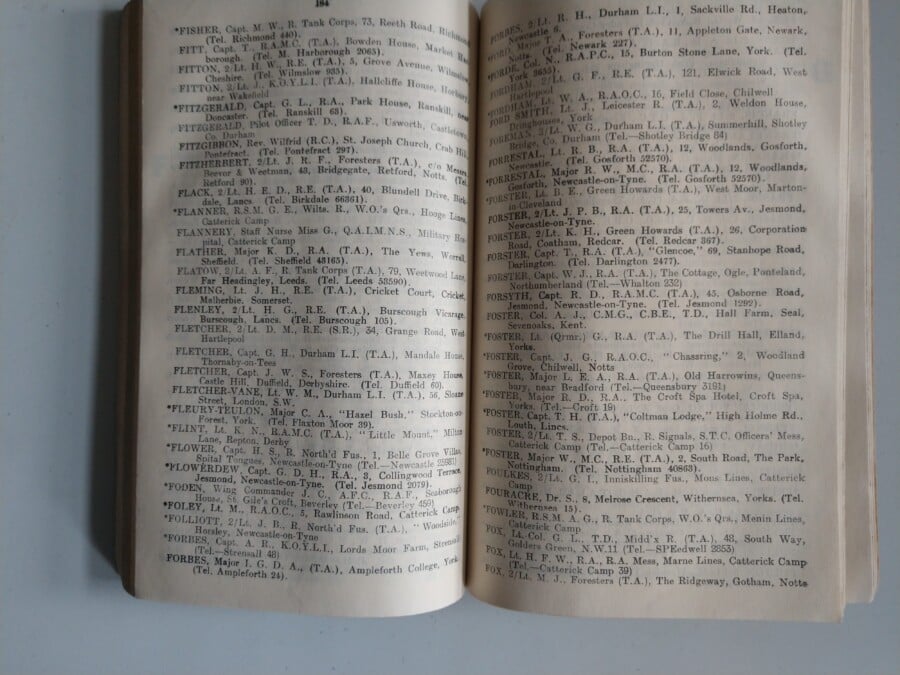 184
*FISHER, Capt. M. W., R. Tank Corps, 73, Reeth Road, Richmond
(Tel. Richmond 440).
FITT, Capt. T., R.A.M.C. (T.A.), Bowden House, Market Har-
borough. (Tel. M. Harborough 2065).
FITTON, 2/Lt. H. W., R.E. (T.A.), 5, Grove Avenue, Wilmslow,
Cheshire. (Tel. Wilmslow 935).
FITTON, 2/Lt. J., K.O.Y.L.I. (T.A.), Hallcliffe House, Horbury,
near Wakefield
*FITZGERALD, Capt. G. L., R.A., Park House, Ranskill, near
Doncaster. (Tel. Ranskill 63).
FITZGERALD, Pilot Officer T. D., R.A.F., Usworth, Castletown,
Co. Durham
FITZGIBBON, Rev. Wilfrid (R.C.), St. Joseph Church, Crab Hill,
Pontefract. (Tel. Pontefract 297).
FITZHERBERT, 2/Lt. J. R. F., Foresters (T.A.), c/o Messrs.
Beevor & Weetman, 43, Bridgegate, Retford, Notts. (Tel.
Retford 90).
FLACK, 2/Lt. H. E. D., R.E. (T.A.), 40, Blundell Drive, Birk-
dale, Lancs. (Tel. Birkdale 66361).
*FLANNER, R.S.M. G. E., Wilts. R., W.O.'s Qrs., Hooge Lines,
Catterick Camp
FLANNERY, Staff Nurse Miss G., Q.A.I.M.N.S., Military Hos-
pital, Catterick Camp
FLATHER, Major K. D., R.A. (T.A.), The Yews, Worrall,
Sheffield. (Tel. Sheffield 43165).
FLATOW, 2/Lt. A. F., R. Tank Corps (T.A.), 79, Weetwood Lane,
Far Headingley, Leeds. (Tel. Leeds 53590).
FLEMING, Lt. J. H., R.E. (T.A.), Cricket Court, Cricket
Malherbie, Somerset.
FLENLEY, 2/Lt. H. G., R.E. (T.A.), Burscough Vicarage,
Burscough, Lancs. (Tel. Burscough 105).
FLETCHER, 2/Lt. D. M., R.E. (S.R.), 34, Grange Road, West
Hartlepool
FLETCHER, Capt. G. H., Durham L.I. (T.A.), Mandale House,
Thornaby-on-Tees
FLETCHER, Capt. J. W. S., Foresters (T.A.), Maxey House,
Castle Hill, Duffield, Derbyshire. (Tel. Duffield 60).
FLETCHER-VANE, Lt. W. M., Durham L.I. (T.A.), 56, Sloane
Street, London, S.W.
*FLEURY-TEULON, Major C. A., "Hazel Bush," Stockton-on-
Forest, York. (Tel. Flaxton Moor 39).
*FLINT, Lt. K. N., R.A.M.C. (T.A.), "Little Mount," Milton
Lane, Repton, Derby
*FLOWER, Capt. H. S., R. North'd Fus., 1, Belle Grove Villas,
Spital Tongues, Newcastle-on-Tyne (Tel.—Newcastle 25981)
*FLOWERDEW, Capt. G. D. H., R.A., 3, Collingwood Terrace,
Jesmond, Newcastle-on-Tyne. (Tel. Jesmond 2079).
*FODEN, Wing Commander J. C., A.F.C., R.A.F., Seaborough
House, St. Gile's Croft, Beverley (Tel.—Beverley 459)
*FOLEY, Lt. M., R.A.O.C., 5, Rawlinson Road, Catterick Camp.
*FOLLIOTT, 2/Lt. J. B., R. North'd Fus. (T.A.), "Woodside,"
Horsley, Newcastle-on-Tyne
*FORBES, Capt. A. R., K.O.Y.L.I., Lords Moor Farm, Strensall
(Tel.—Strensall 48)
FORBES, Major I. G. D. A., (T.A.), Ampleforth College, York.
(Tel. Ampleforth 24).
FORBES, 2/Lt. R. H., Durham L.I., 1, Sackville Rd., Heaton,
Newcastle 6.
*FORD, Major T. A., Foresters (T.A.), 11, Appleton Gate, Newark,
Notts. (Tel. Newark 227).
*FORDE, Col. N., R.A.P.C., 15, Burton Stone Lane, York. (Tel.
York 3655).
FORDHAM, 2/Lt. G. F., R.E. (T.A.), 121, Elwick Road, West
Hartlepool
*FORDHAM, Lt. W. A., R.A.O.C., 16, Field Close, Chilwell
FORD SMITH, Lt. J., Leicester R. (T.A.), 2, Weldon House,
Dringhouses, York
FOREMAN, 2/Lt. W. G., Durham L.I. (T.A.), Summerhill, Shotley
Bridge, Co. Durham (Tel.—Shotley Bridge 84)
FORRESTAL, Lt. R. B., R.A. (T.A.), 12, Woodlands, Gosforth,
Newcastle. (Tel. Gosforth 52570).
*FORRESTAL, Major R. W., M.C., R.A. (T.A.), 12, Woodlands,
Gosforth, Newcastle-on-Tyne. (Tel. Gosforth 52570).
*FORSTER, Lt. B. E., Green Howards (T.A.), West Moor, Marton-
in-Cleveland
FORSTER, 2/Lt. J. P. B., R.A. (T.A.), 25, Towers Av., Jesmond,
Newcastle-on-Tyne.
FORSTER, 2/Lt. K. H., Green Howards (T.A.), 26, Corporation
Road, Coatham, Redcar. (Tel. Redcar 367).
FORSTER, Capt. T., R.A. (T.A.), "Glencoe," 69, Stanhope Road,
Darlington. (Tel. Darlington 2477).
FORSTER, Capt. W. J., R.A. (T.A.), The Cottage, Ogle, Ponteland,
Northumberland (Tel.—Whalton 232)
FORSYTH, Capt. R. D., R.A.M.C. (T.A.), 45, Osborne Road,
Jesmond, Newcastle-on-Tyne. (Tel. Jesmond 1292).
FOSTER, Col. A. J., C.M.G., C.B.E., T.D., Hall Farm, Seal,
Sevenoaks, Kent.
*FOSTER, Lt. (Qrmr.) G., R.A. (T.A.), The Drill Hall, Elland,
Yorks.
*FOSTER, Capt. J. G., R.A.O.C., "Chassring," 2, Woodland
Grove, Chilwell, Notts
*FOSTER, Major L. E. A., R.A. (T.A.), Old Harrowins, Queens-
bury, near Bradford (Tel.—Queensbury 3191)
*FOSTER, Major R. D., R.A.. The Croft Spa Hotel, Croft Spa,
Yorks. (Tel.—Croft 19)
*FOSTER, Capt. T. H. (T.A.), "Coltman Lodge," High Holme Rd.,
Louth, Lincs.
FOSTER, 2/Lt. T. S., Depot Bn., R. Signals, S.T.C. Officers' Mess,
Catterick Camp (Tel.—Catterick Camp 16)
*FOSTER, Major W., M.C., R.E. (T.A.), 2, South Road, The Park,
Nottingham. (Tel. Nottingham 40863).
FOULKES, 2/Lt. G. I., Inniskilling Fus., Mons Lines, Catterick
Camp
FOURACRE, Dr. S., 8, Melrose Crescent, Withernsea, Yorks. (Tel.
Withernsea 15).
*FOWLER, R.S.M. A. G., R. Tank Corps, W.O.'s Qrs., Menin Lines,
Catterick Camp
FOX, Lt.-Col. G. L., T.D., Midd'x R. (T.A.), 48, South Way,
Golders Green, N.W.11 (Tel.—SPEedwell 2853)
FOX, Lt. H. F. W., R.A., R.A. Mess, Marne Lines, Catterick Camp
(Tel.—Catterick Camp 39)
FOX, 2/Lt. M. J., Foresters (T.A.), The Ridgeway, Gotham, Notts